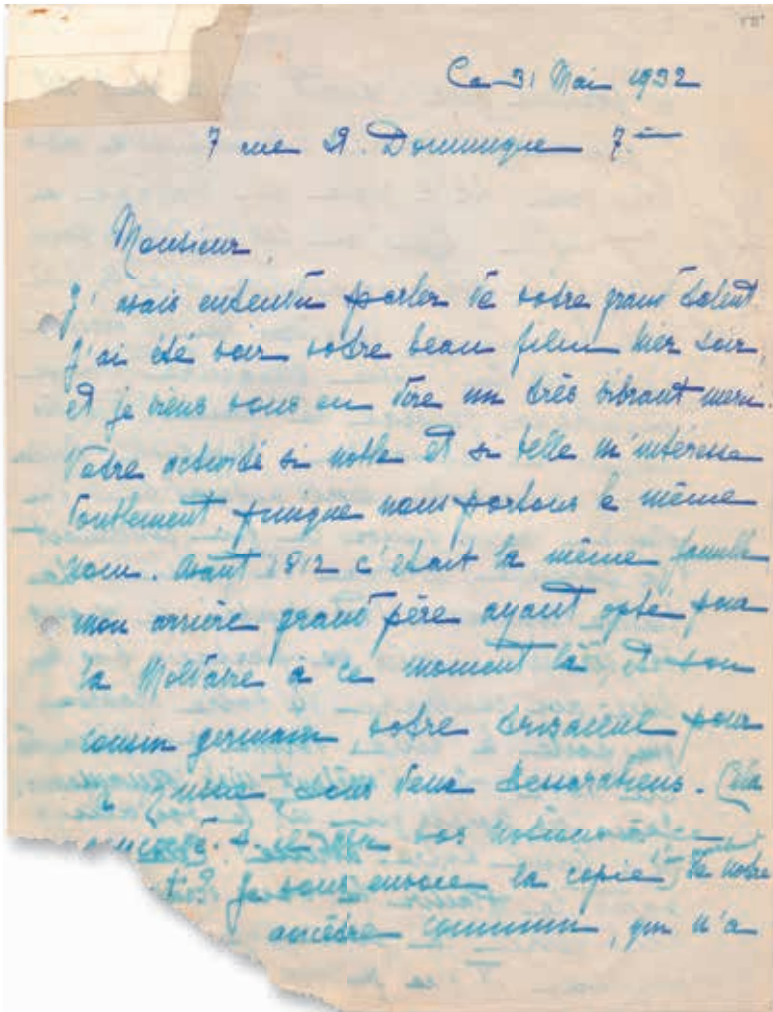 Ce 31 Mai 1932
7 rue St. Dominique 7.
Monsieur,
J'avais entendu parler de votre grand talent.
J'ai été voir votre beau film hier soir,
et je viens vous en dire un très vibrant merci.
Votre activité si noble et si belle m'intéresse
doublement, puisque nous portons le même
nom. Avant 1812 c'était la même famille
mon arrière grand père ayant opté pour
la Moldavie à ce moment là et son
cousin germain votre trisaïeul pour
Russie dans leurs
vos
t? Je vous envoie la copie de notre
ancêtre commun, qui n'a